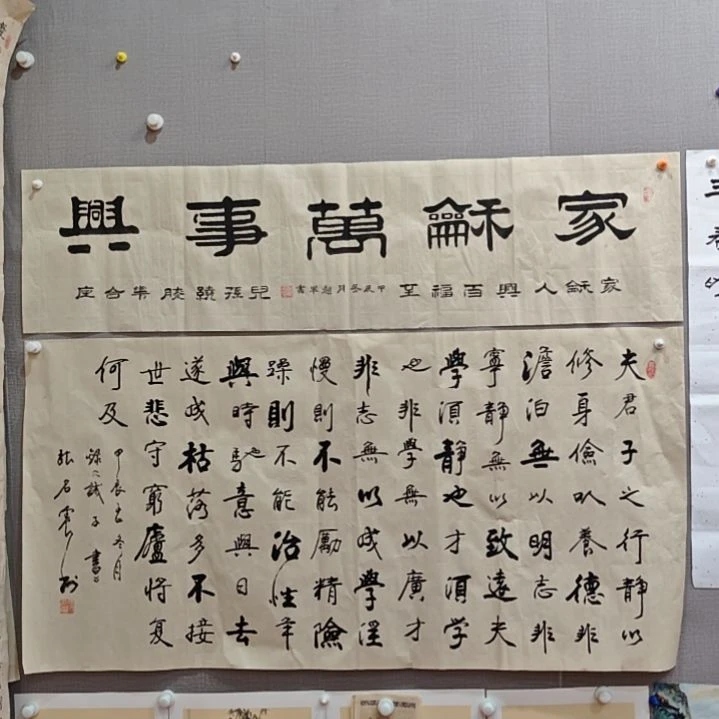 家龢萬事興
家龢人興百福至
兒孫繞膝合座
甲辰冬月書
夫君子之行靜以
修身儉以養德非
澹泊無以明志非
寧靜無以致遠夫
學須靜也才須学
也非學無以廣才
非志無以成學淫
慢則不能勵精險
躁則不能治性年
與時馳也意與日去
遂成枯落多不接
世悲守窮廬將复
何及
甲辰冬月
錄誡子書
三春